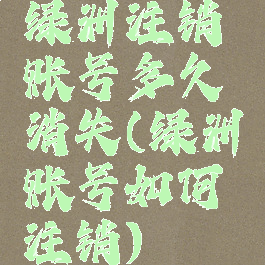 绿洲注销
账号多久
消失(绿洲
账号如何
注销)